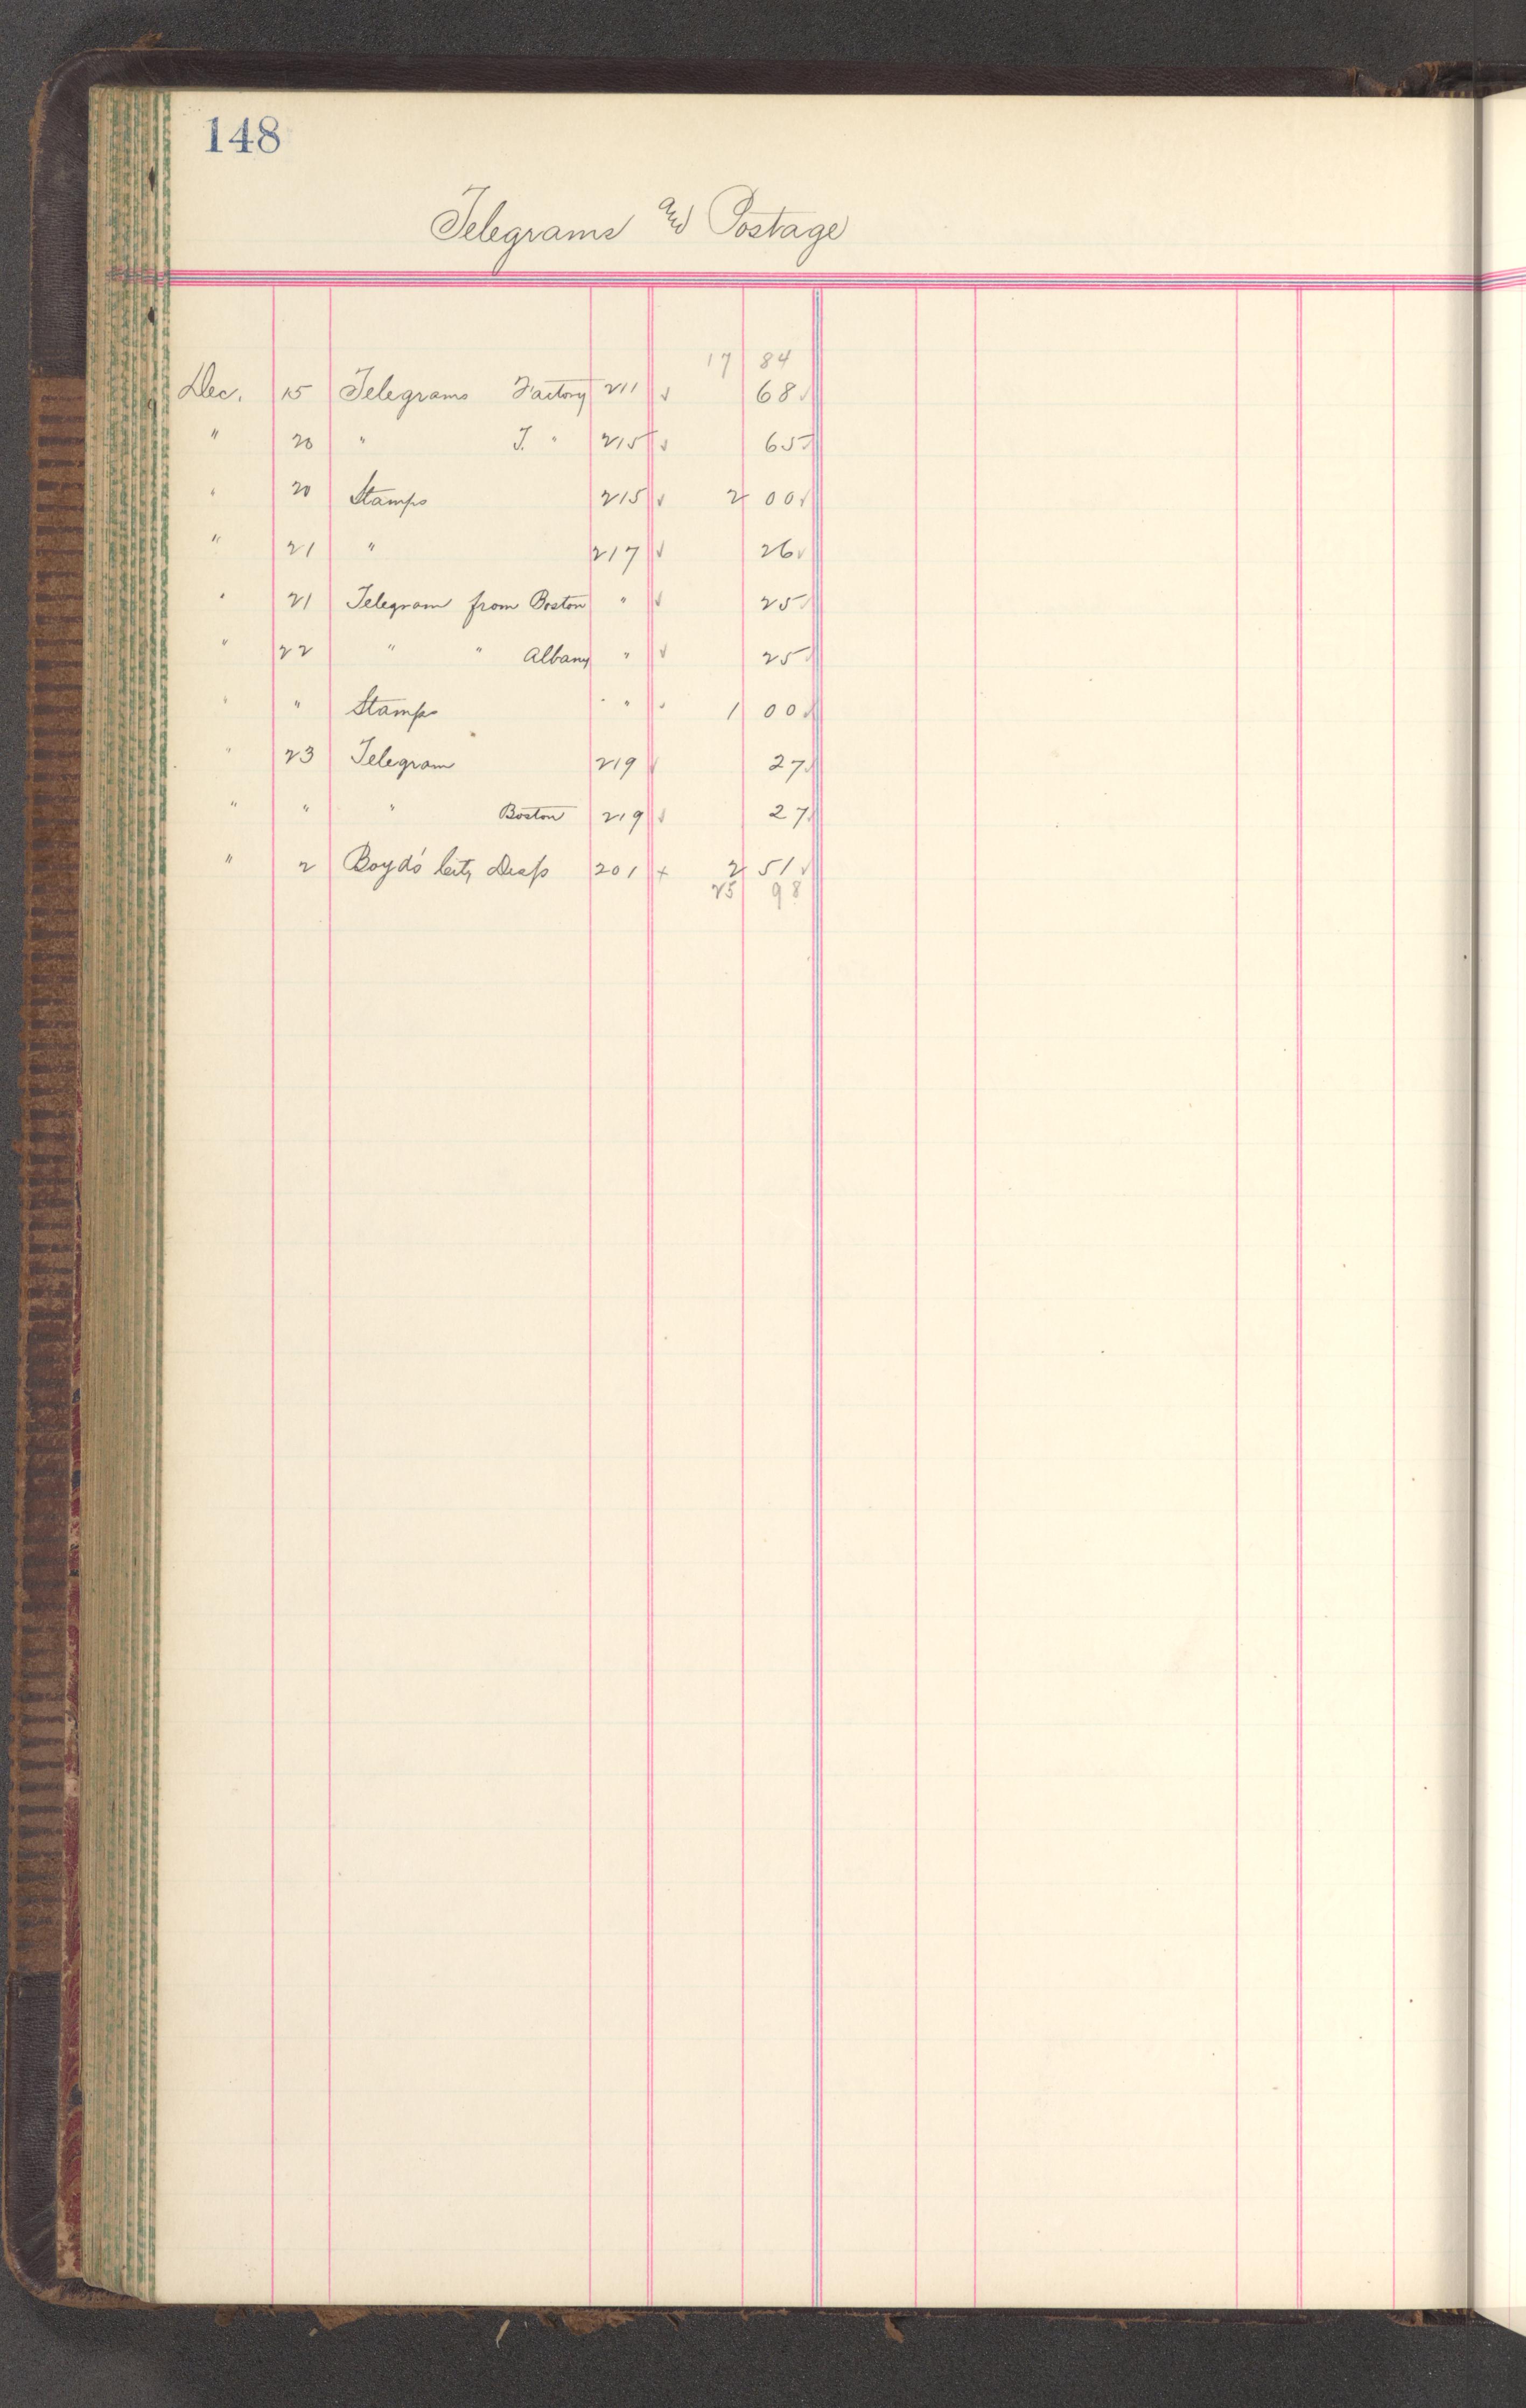 148
Telegrams and Postage
17 84
Dec. 15 Telegrams Factory 211 ✓ 68 ✓
" 20 " J. " 215 ✓ 65 ✓
" 20 Stamps 215 ✓ 2 00 ✓
" 21 " 217 ✓ 26 ✓
" 21 Telegram from Boston " ✓ 25 ✓
" 22 " " Albany " ✓ 25 ✓
" " Stamps " " ✓ 1 00 ✓
" 23 Telegram 219 ✓ 27 ✓
" " " Boston 219 ✓ 27 ✓
" 2 Boyd's City Desp 201 + 2 51 ✓
25 98